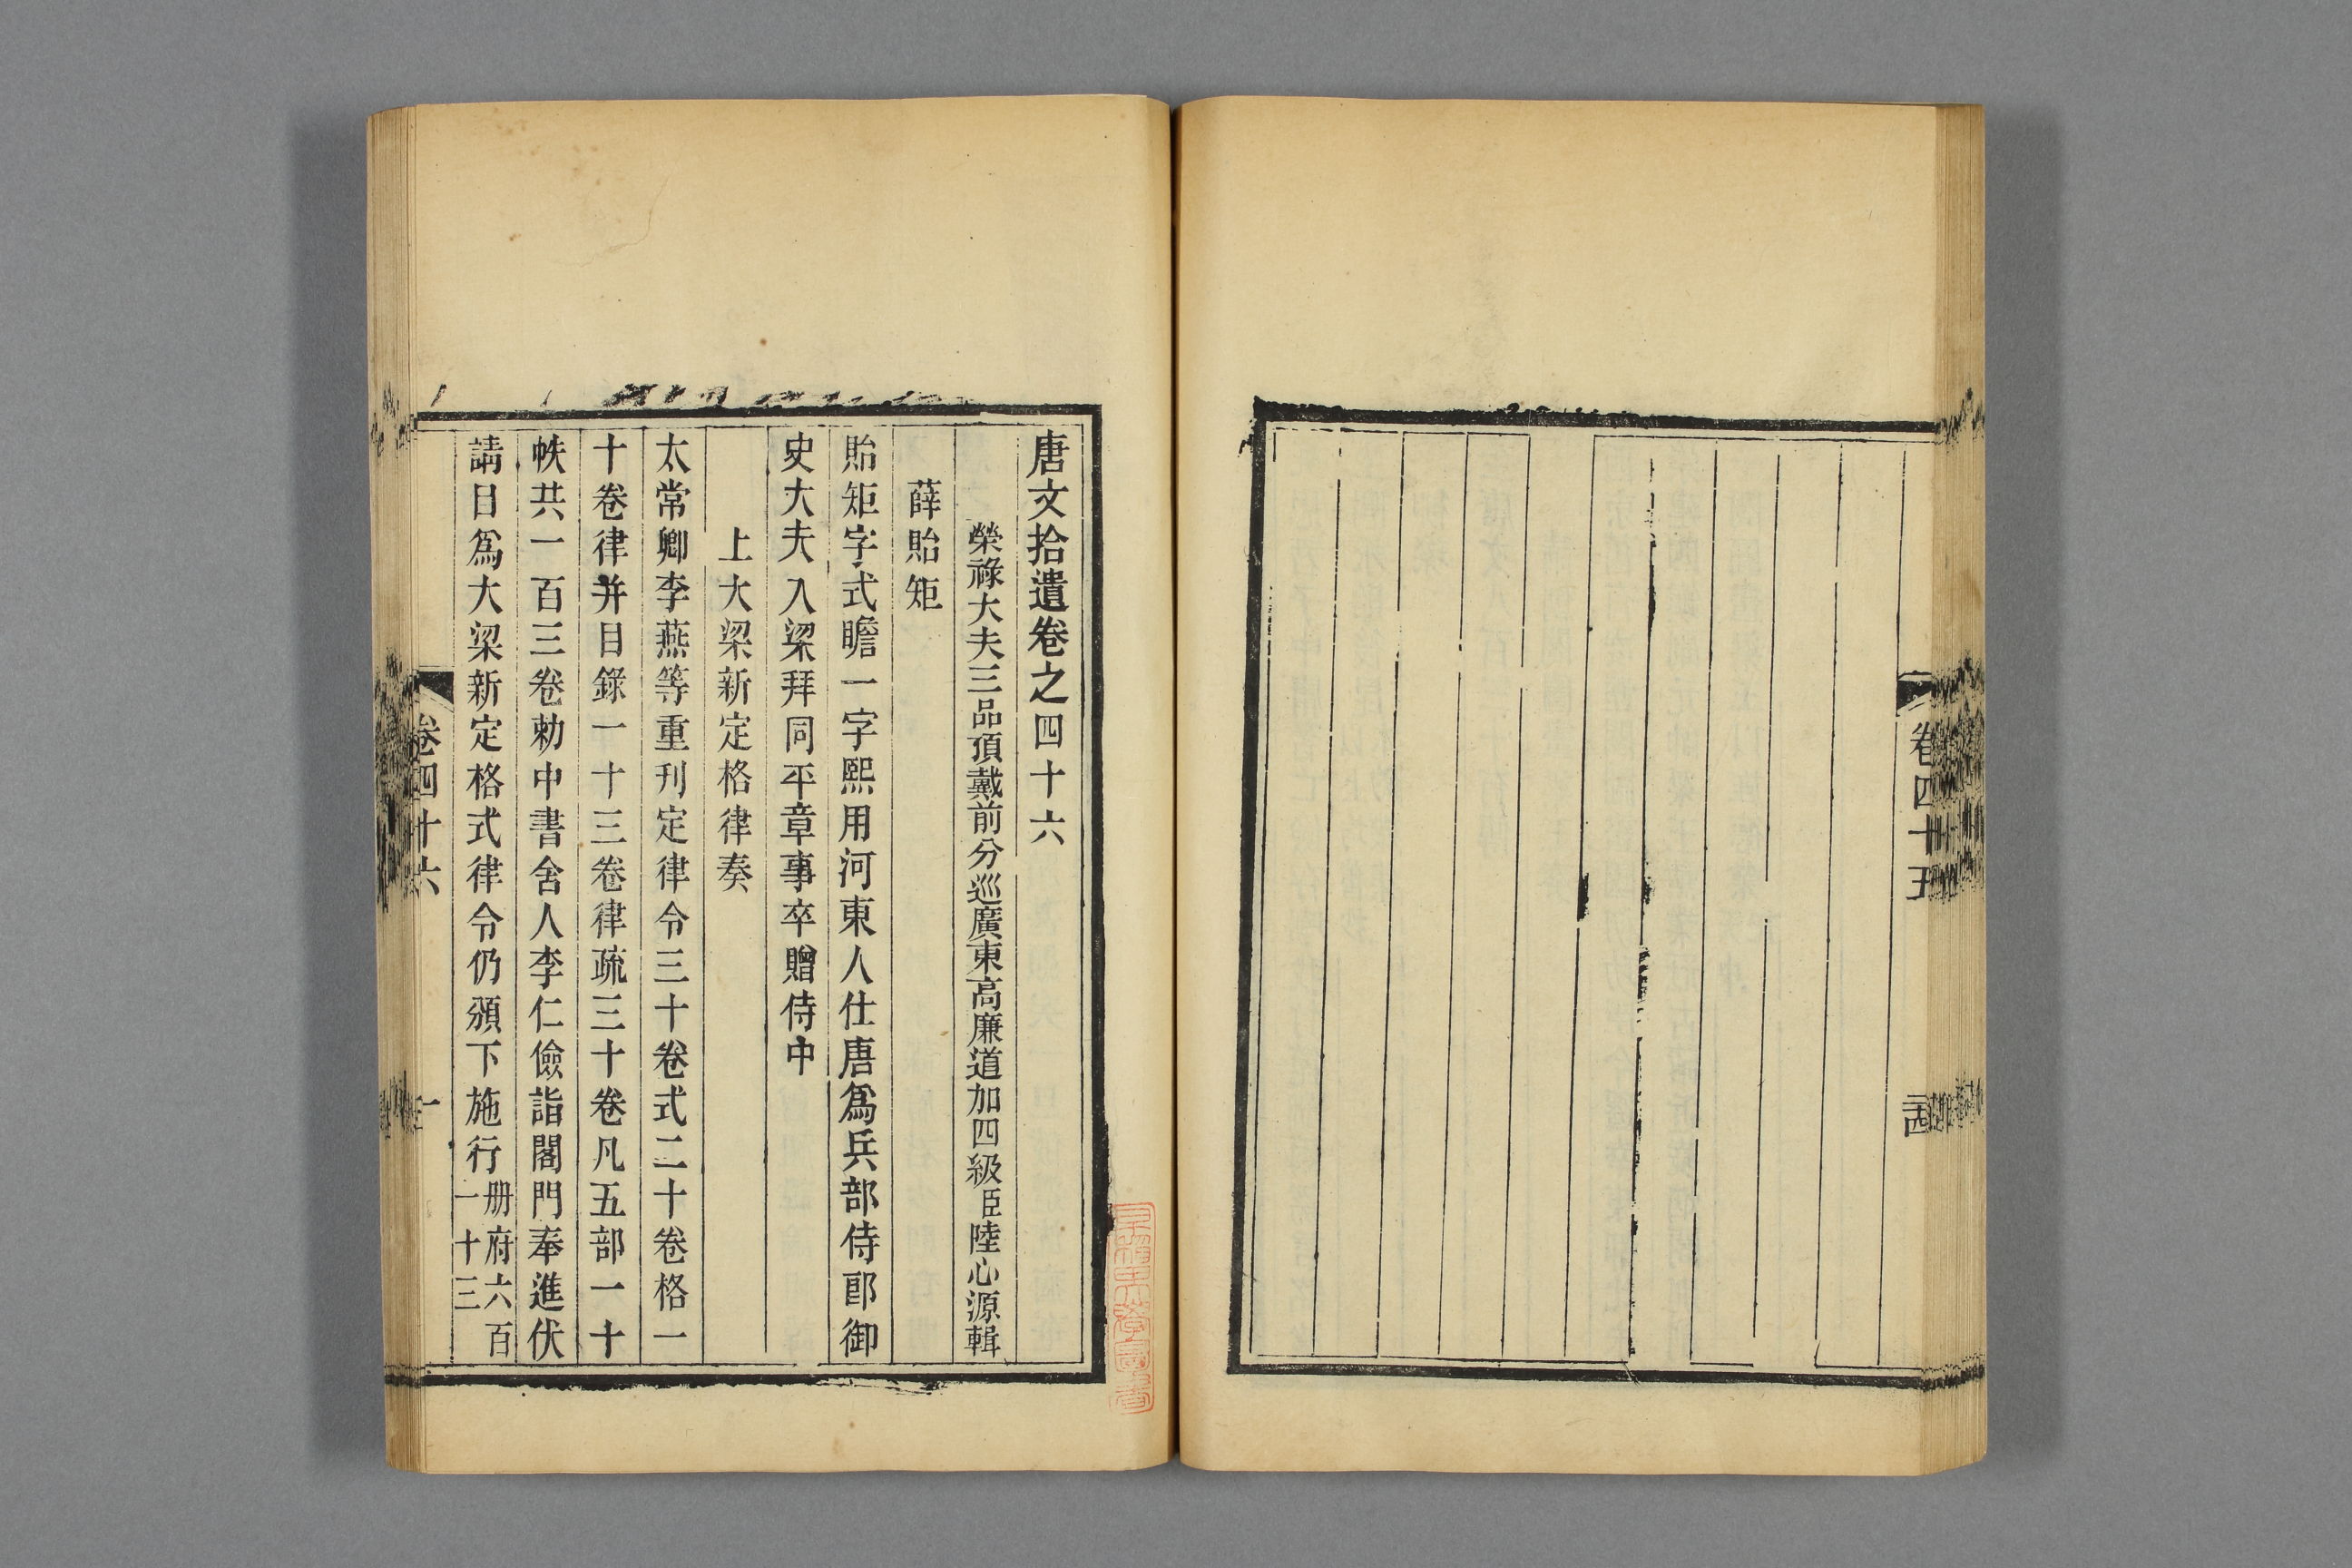 卷四十五
唐文拾遺卷之四十六
榮祿大夫三品頂戴前分巡廣東高廉道加四級臣陸心源輯
薛貽矩
貽矩字式瞻一字熙用河東人仕唐爲兵部侍郎御
史大夫入梁拜同平章事卒贈侍中
上大梁新定格律奏
太常卿李燕等重刊定律令三十卷式二十卷格一
十卷律并目錄一十三卷律疏三十卷凡五部一十
帙共一百三卷勅中書舍人李仁儉詣閣門奉進伏
請目爲大梁新定格式律令仍頒下施行册府六百
一十三
卷四十六
一